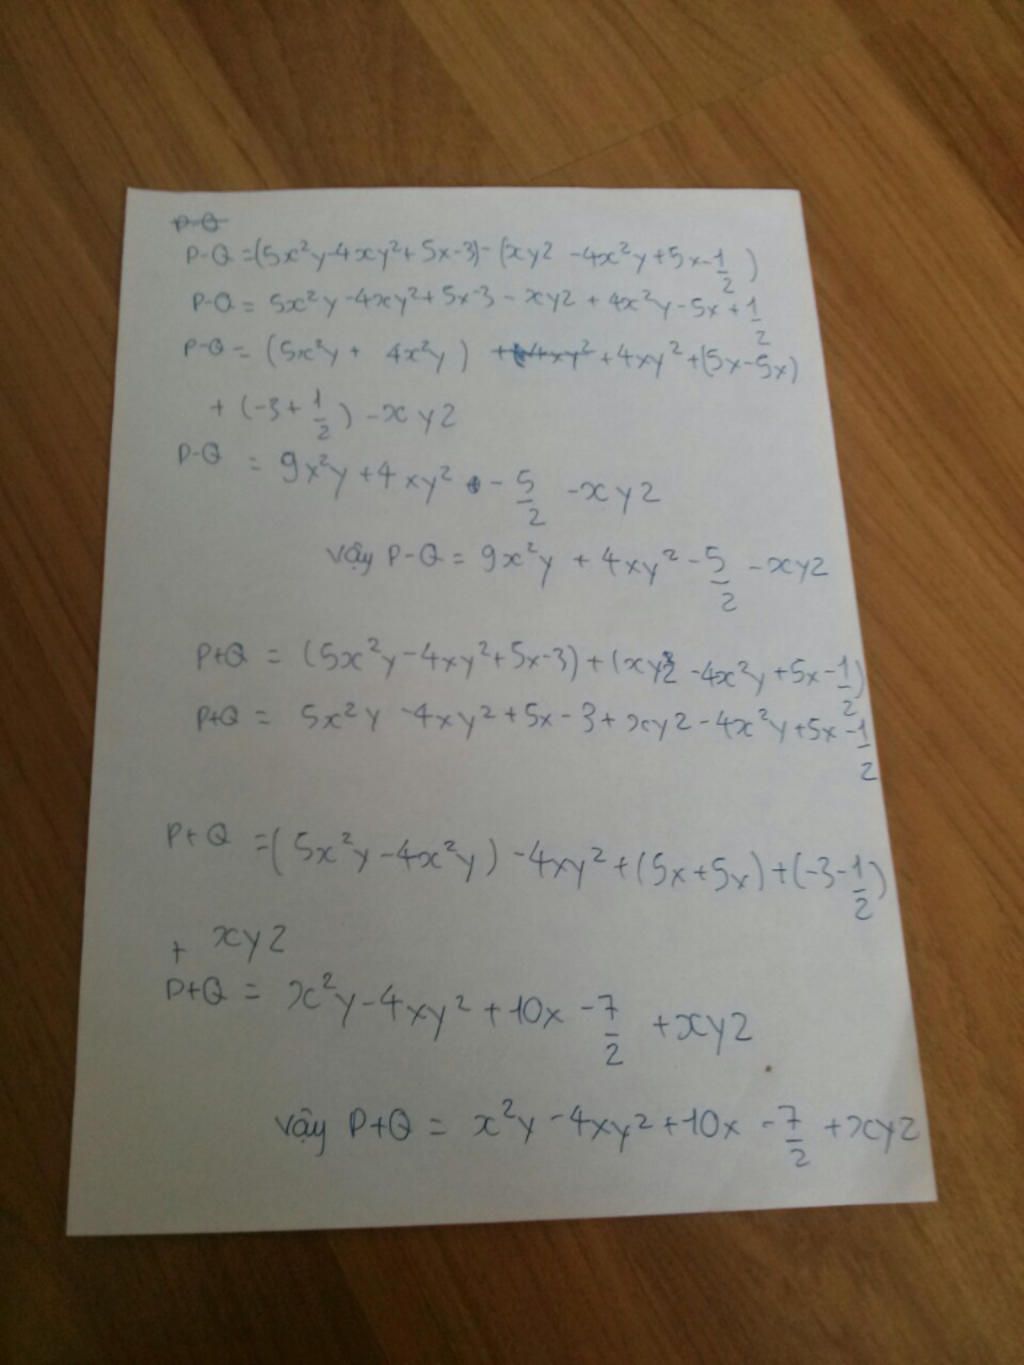 P-Q
P-Q = (5x²y-4xy²+5x-3)-(xyz -4x²y+5x-1/2)
P-Q = 5x²y -4xy²+5x-3 - xyz + 4x²y-5x+1/2
P-Q = (5x²y + 4x²y) + 4xy² +(5x-5x)
+ (-3+1/2) -xyz
P-Q = 9x²y +4xy² - 5/2 -xyz
vậy P-Q = 9x²y + 4xy² - 5/2 -xyz
P+Q = (5x²y-4xy²+5x-3) + (xyz -4x²y+5x-1/2)
P+Q = 5x²y -4xy²+5x-3+xyz-4x²y+5x-1/2
P+Q =(5x²y-4x²y) -4xy²+(5x+5x)+(-3-1/2)
+ xyz
P+Q = x²y-4xy²+10x -7/2 +xyz
vậy P+Q = x²y -4xy²+10x -7/2 +xyz